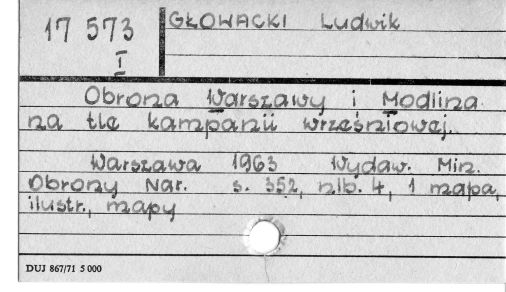 17 573
I
GŁOWACKI Ludwik
Obrona Warszawy i Modlina
na tle kampanii wrześniowej.
Warszawa 1963 Wydaw. Min.
Obrony Nar. s. 352, nlb. 4, 1 mapa,
ilustr., mapy
DUJ 867/71 5 000